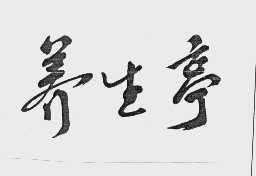 养生亭